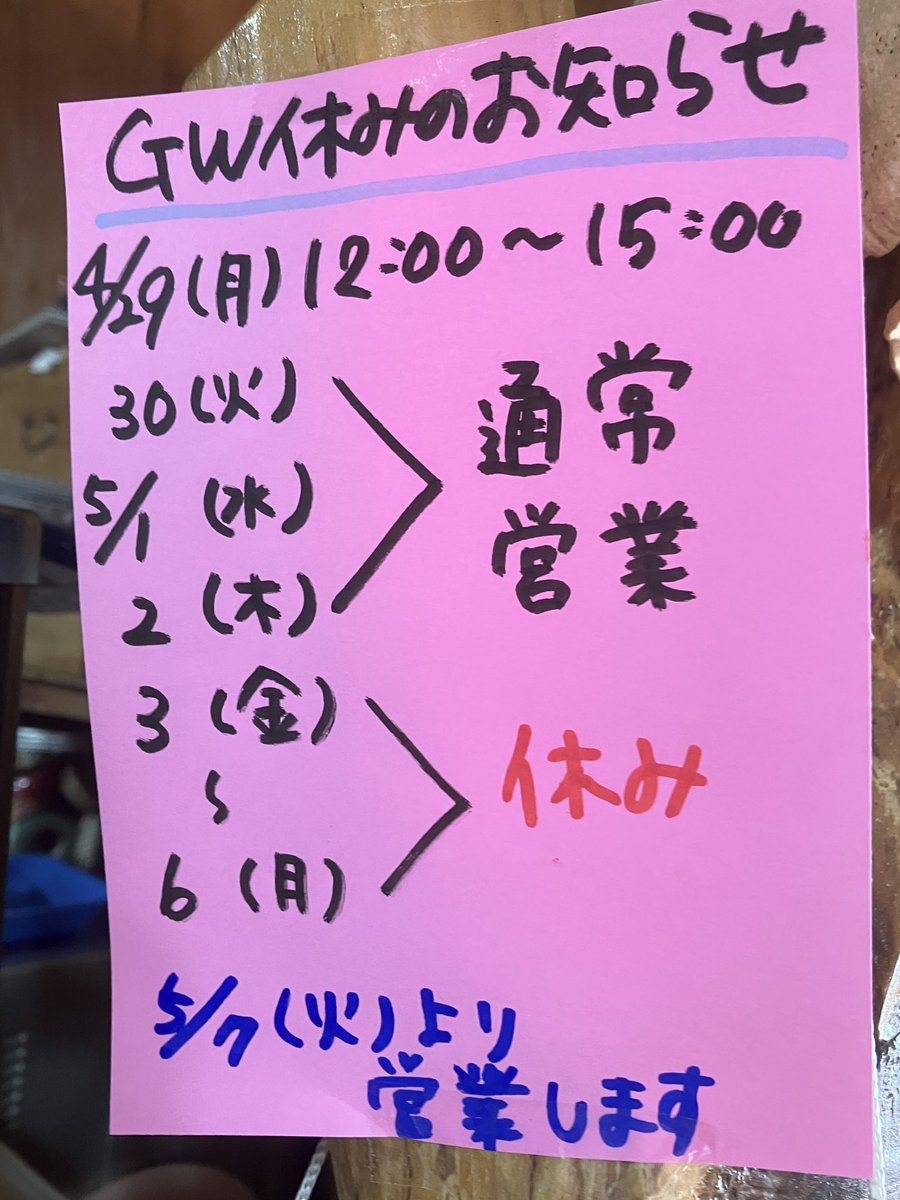 GW休みのお知らせ
4/29(月) 12:00～15:00
30(火)
5/1(水)
2(木)
通常
営業
3(金)
〜
6(月)
休み
5/7(火)より
営業します